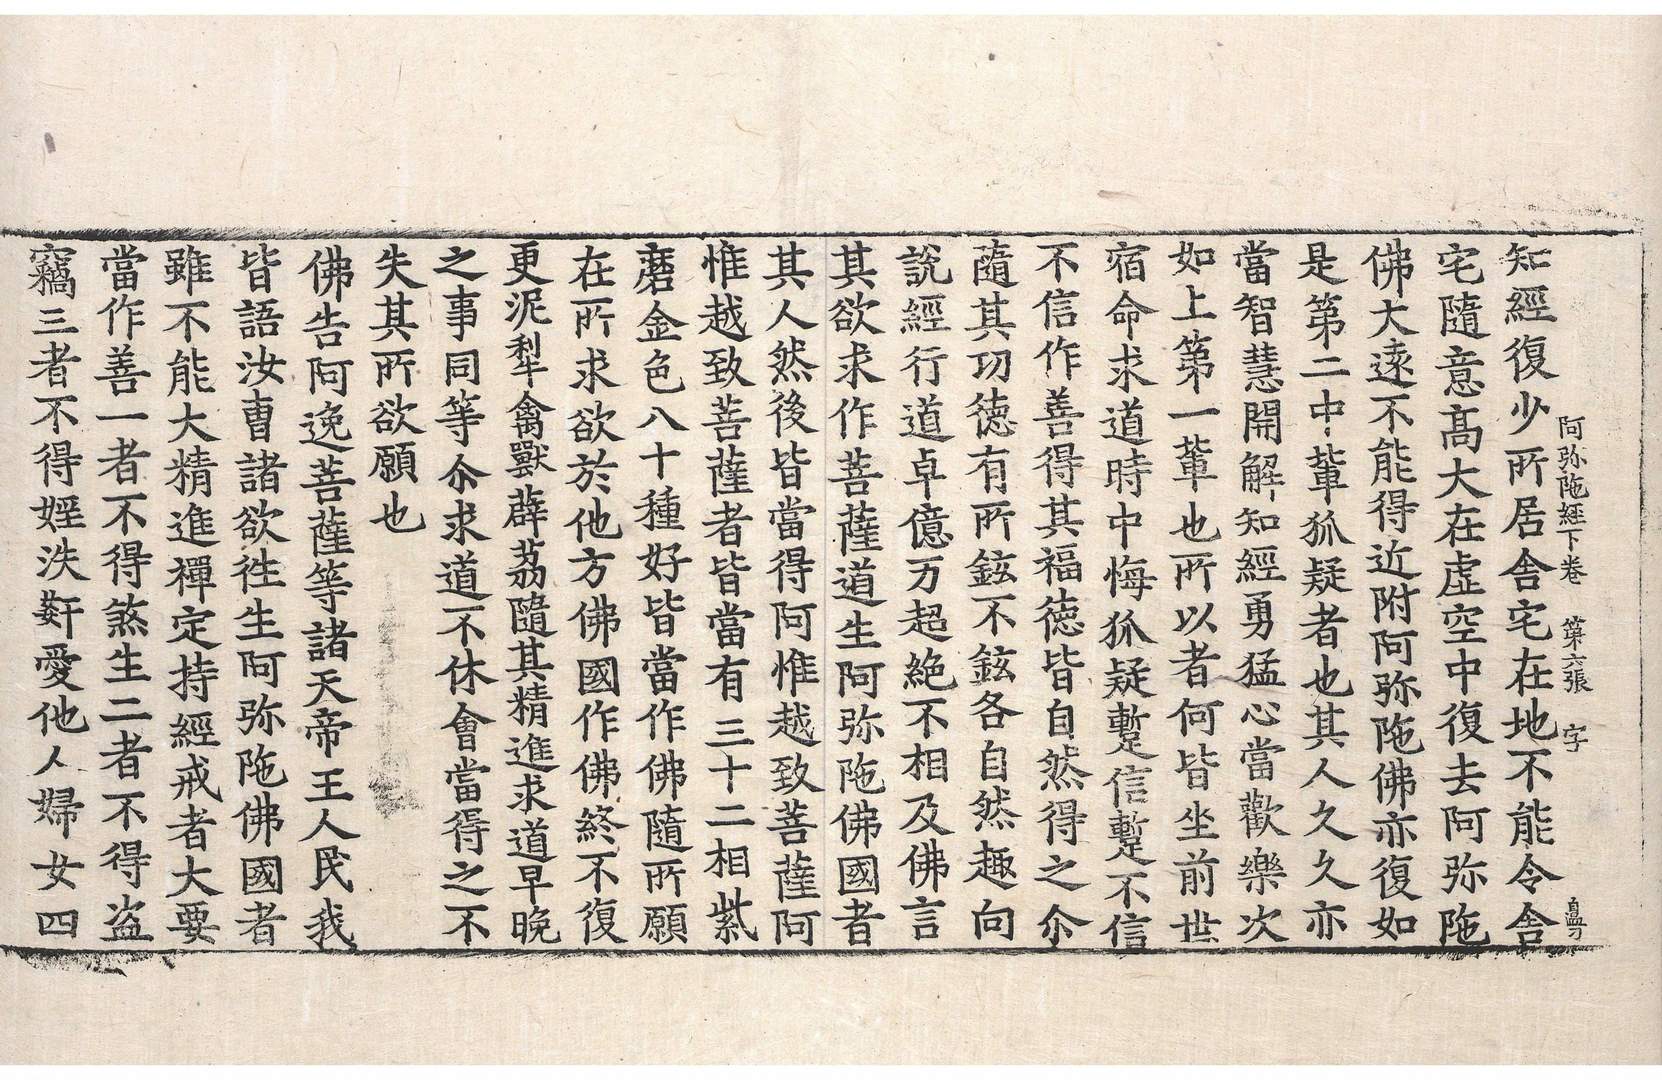 阿弥陁經下卷 第六張 字
知經復少所居舍宅在地不能令舍
宅隨意高大在虛空中復去阿弥陁
佛大遠不能得近附阿弥陁佛亦復如
是第二中輩狐疑者也其人久久亦
當智慧開解知經勇猛心當歡樂次
如上第一輩也所以者何皆坐前世
宿命求道時中悔狐疑蹔信蹔不信
不信作善得其福徳皆自然得之尒
隨其功徳有所鉉不鉉各自然趣向
說經行道卓億万超絶不相及佛言
其欲求作菩薩道生阿弥陁佛國者
其人然後皆當得阿惟越致菩薩阿
惟越致菩薩者皆當有三十二相紫
磨金色八十種好皆當作佛隨所願
在所求欲於他方佛國作佛終不復
更泥犁禽獸薜荔隨其精進求道早晚
之事同等尒求道不休會當得之不
失其所欲願也
佛告阿逸菩薩等諸天帝王人民我
皆語汝曺諸欲徃生阿弥陁佛國者
雖不能大精進禪定持經戒者大要
當作善一者不得煞生二者不得盗
竊三者不得婬泆姧愛他人婦女四